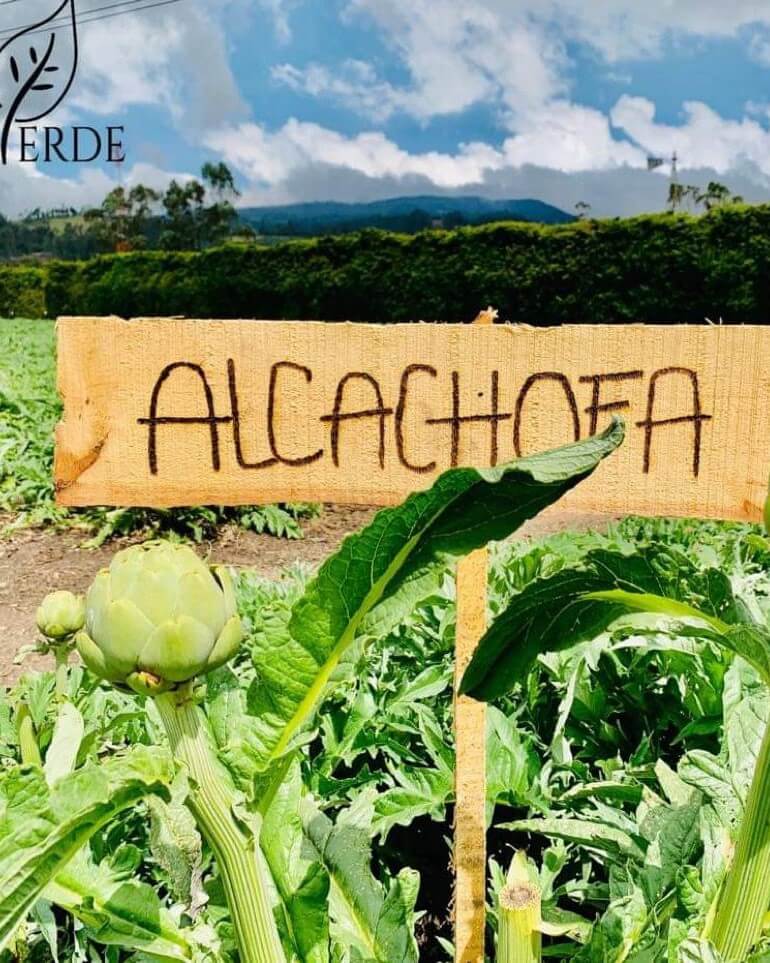 ERDE
ALCACHOFA